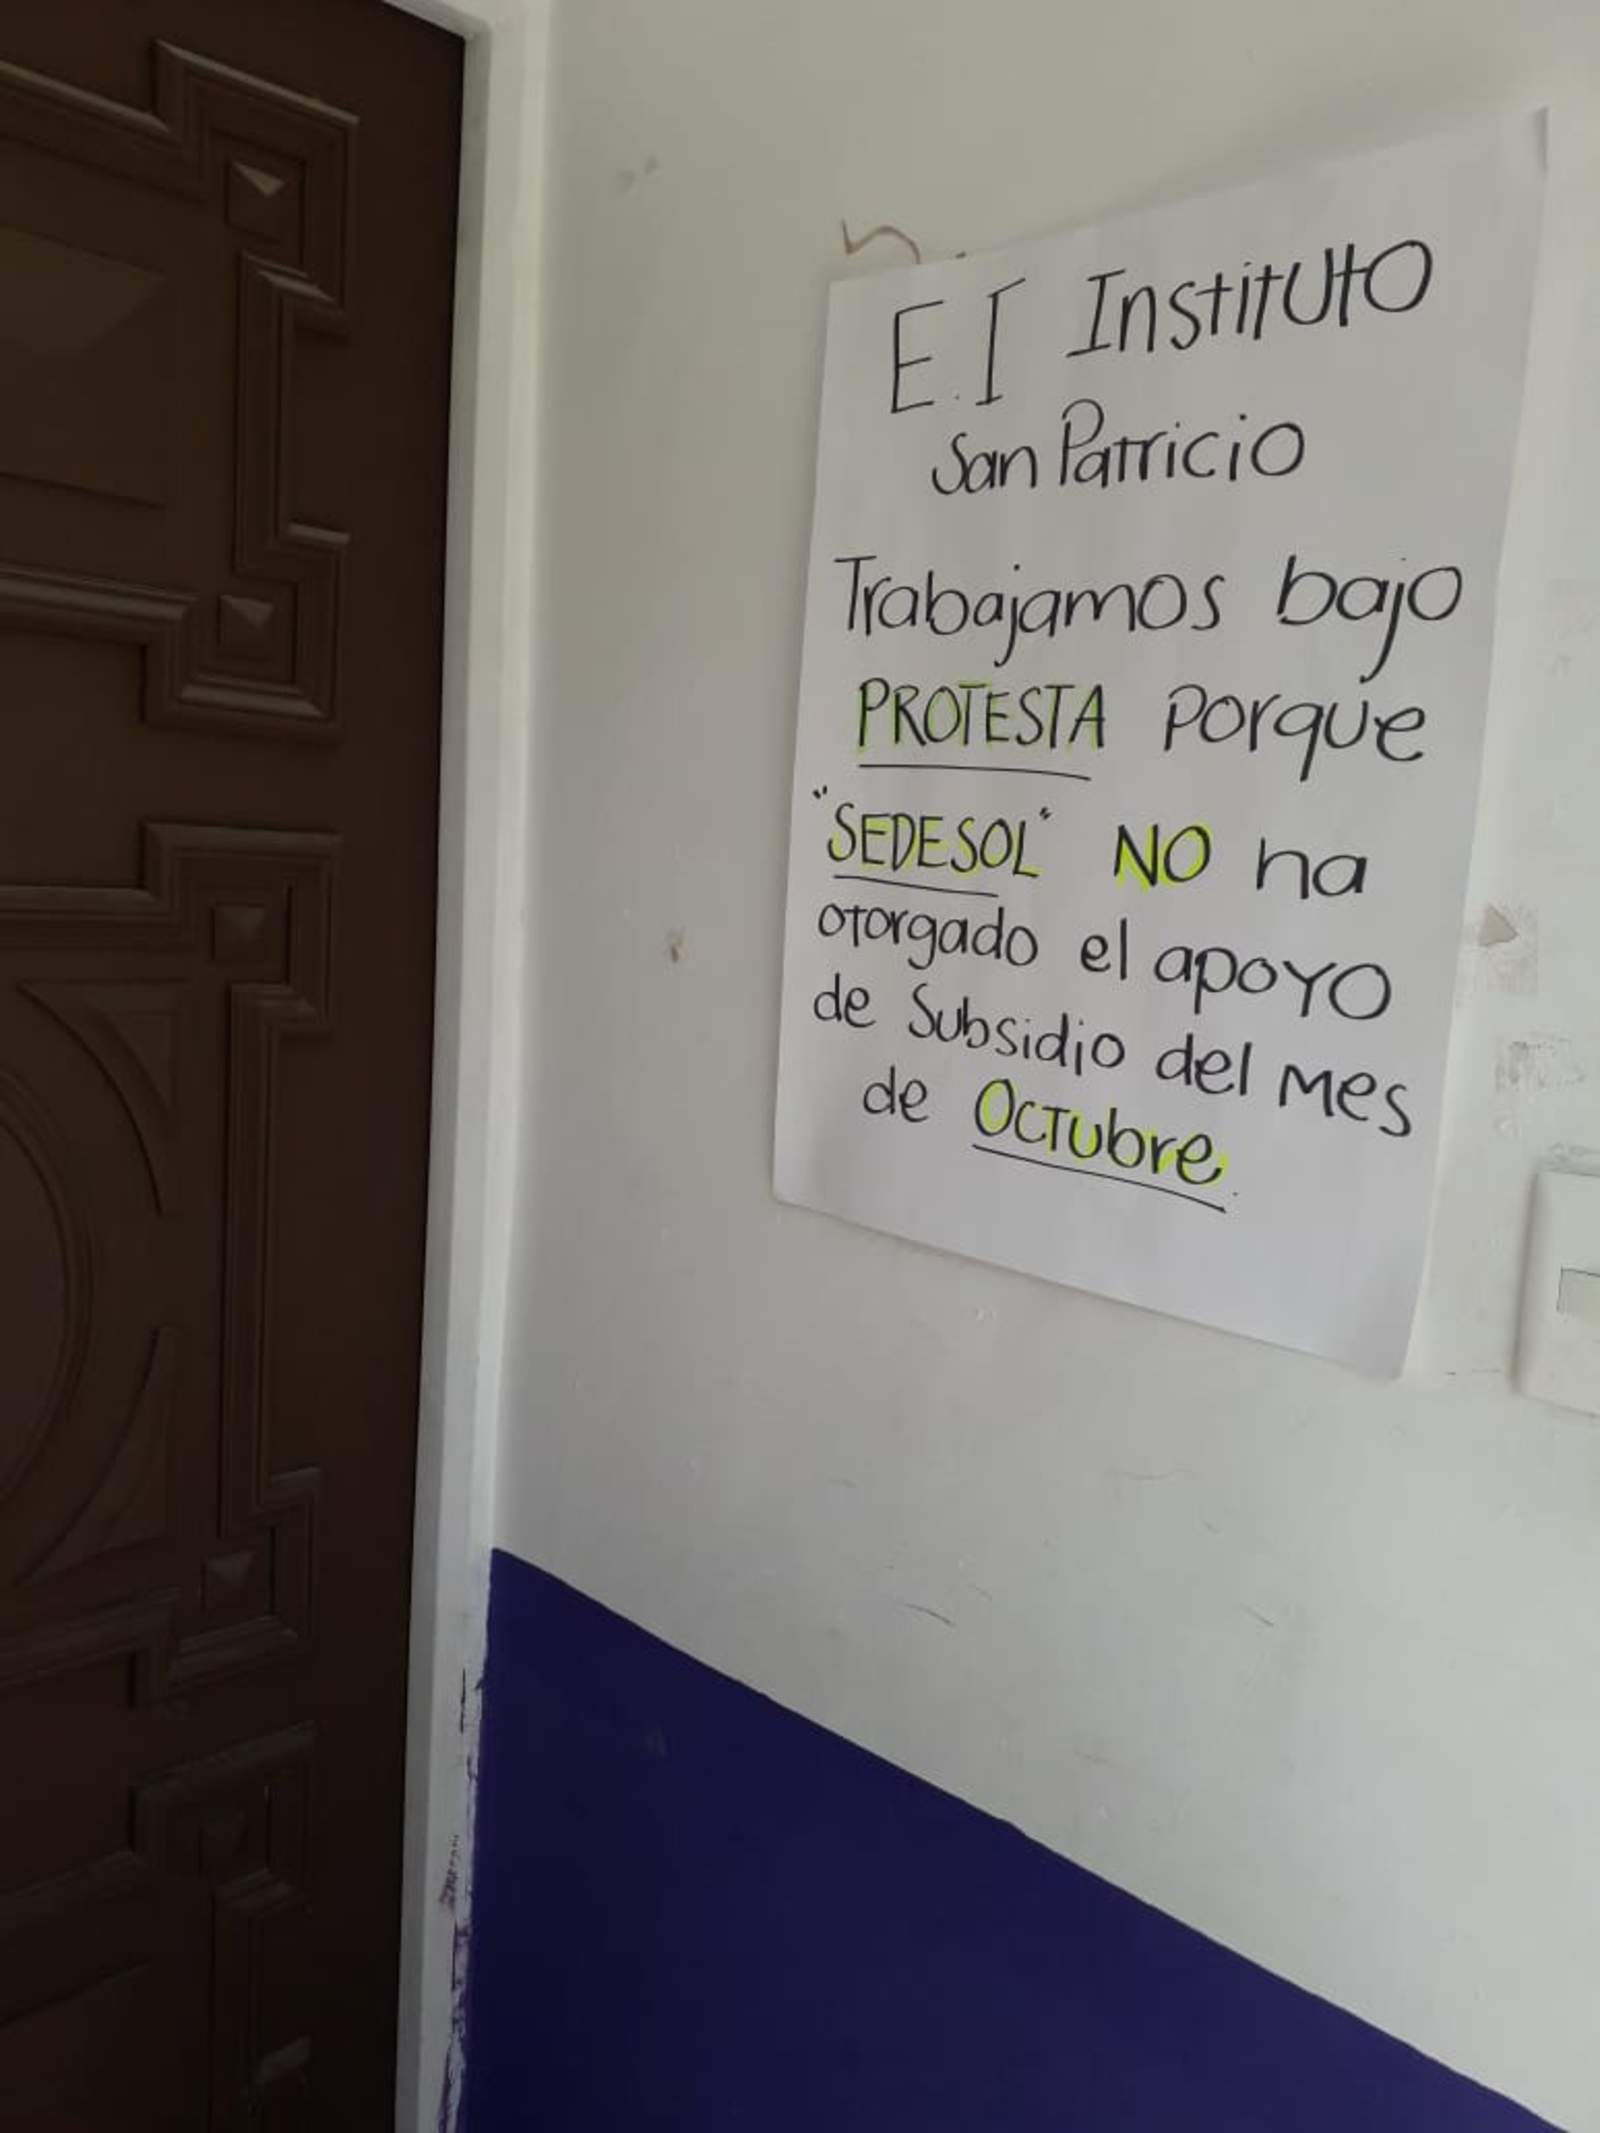 E.I Instituto
San Patricio
Trabajamos bajo
PROTESTA porque
"SEDESOL" NO ha
otorgado el apoyo
de Subsidio del mes
de Octubre.